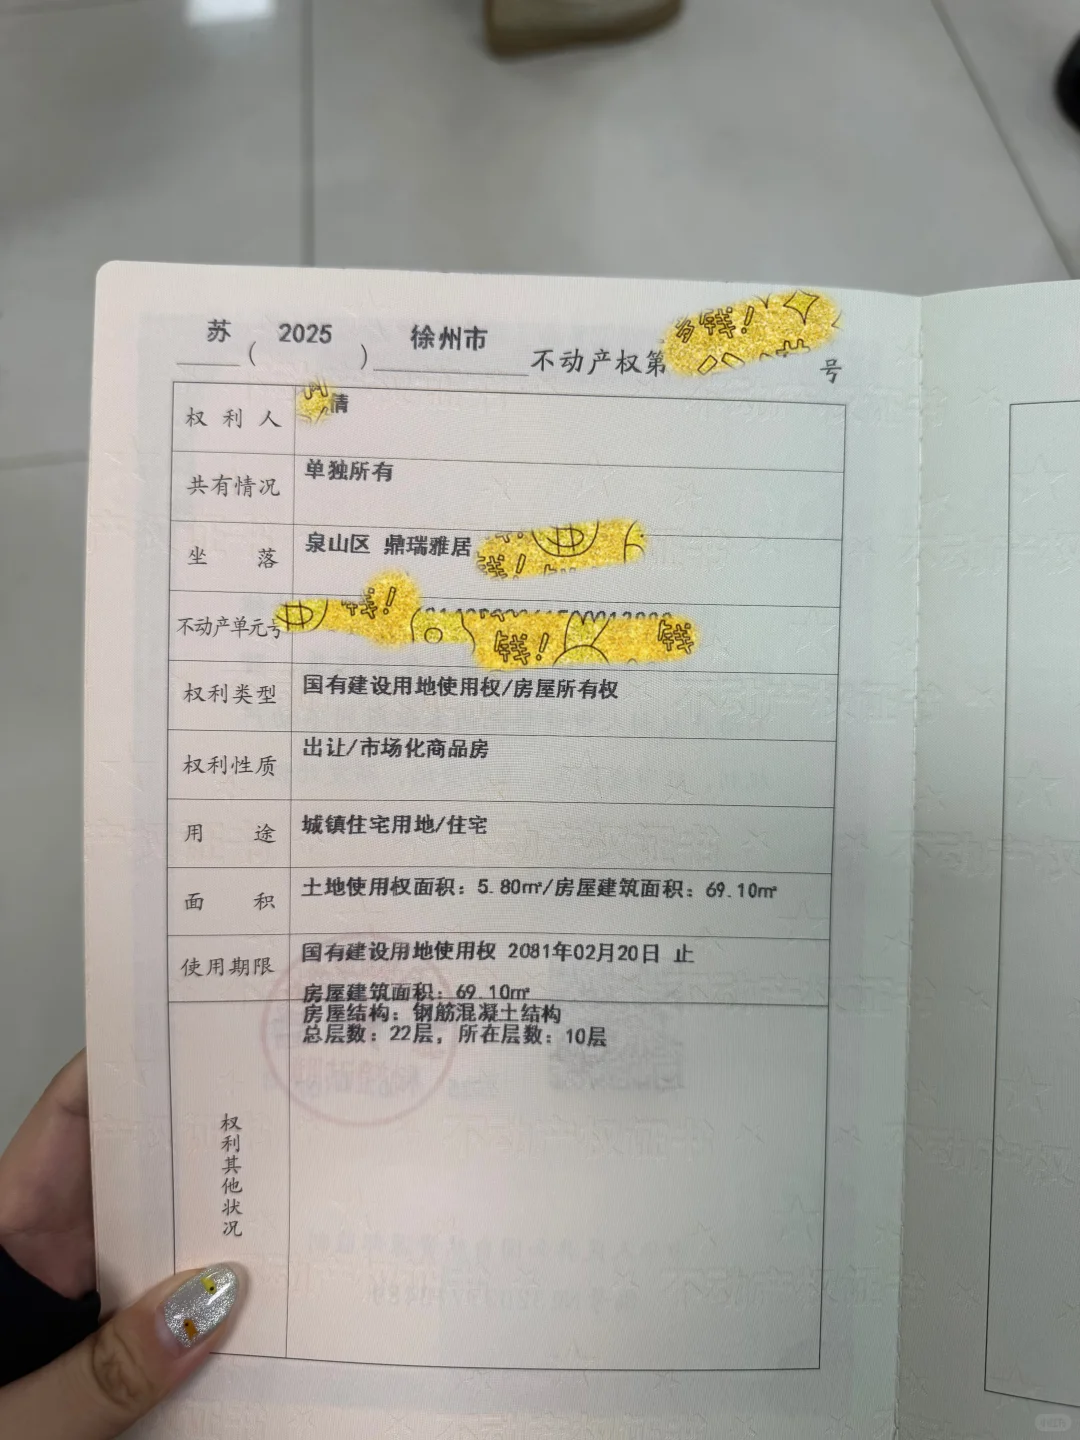 苏（2025）徐州市 不动产权第 号
权利人 倩
共有情况 单独所有
坐落 泉山区 鼎瑞雅居
不动产单元号
权利类型 国有建设用地使用权/房屋所有权
权利性质 出让/市场化商品房
用途 城镇住宅用地/住宅
面积 土地使用权面积：5.80㎡/房屋建筑面积：69.10㎡
使用期限 国有建设用地使用权 2081年02月20日 止
权利其他状况 房屋建筑面积：69.10㎡
房屋结构：钢筋混凝土结构
总层数：22层，所在层数：10层
钱！
钱！
钱！
钱！
钱
小红书